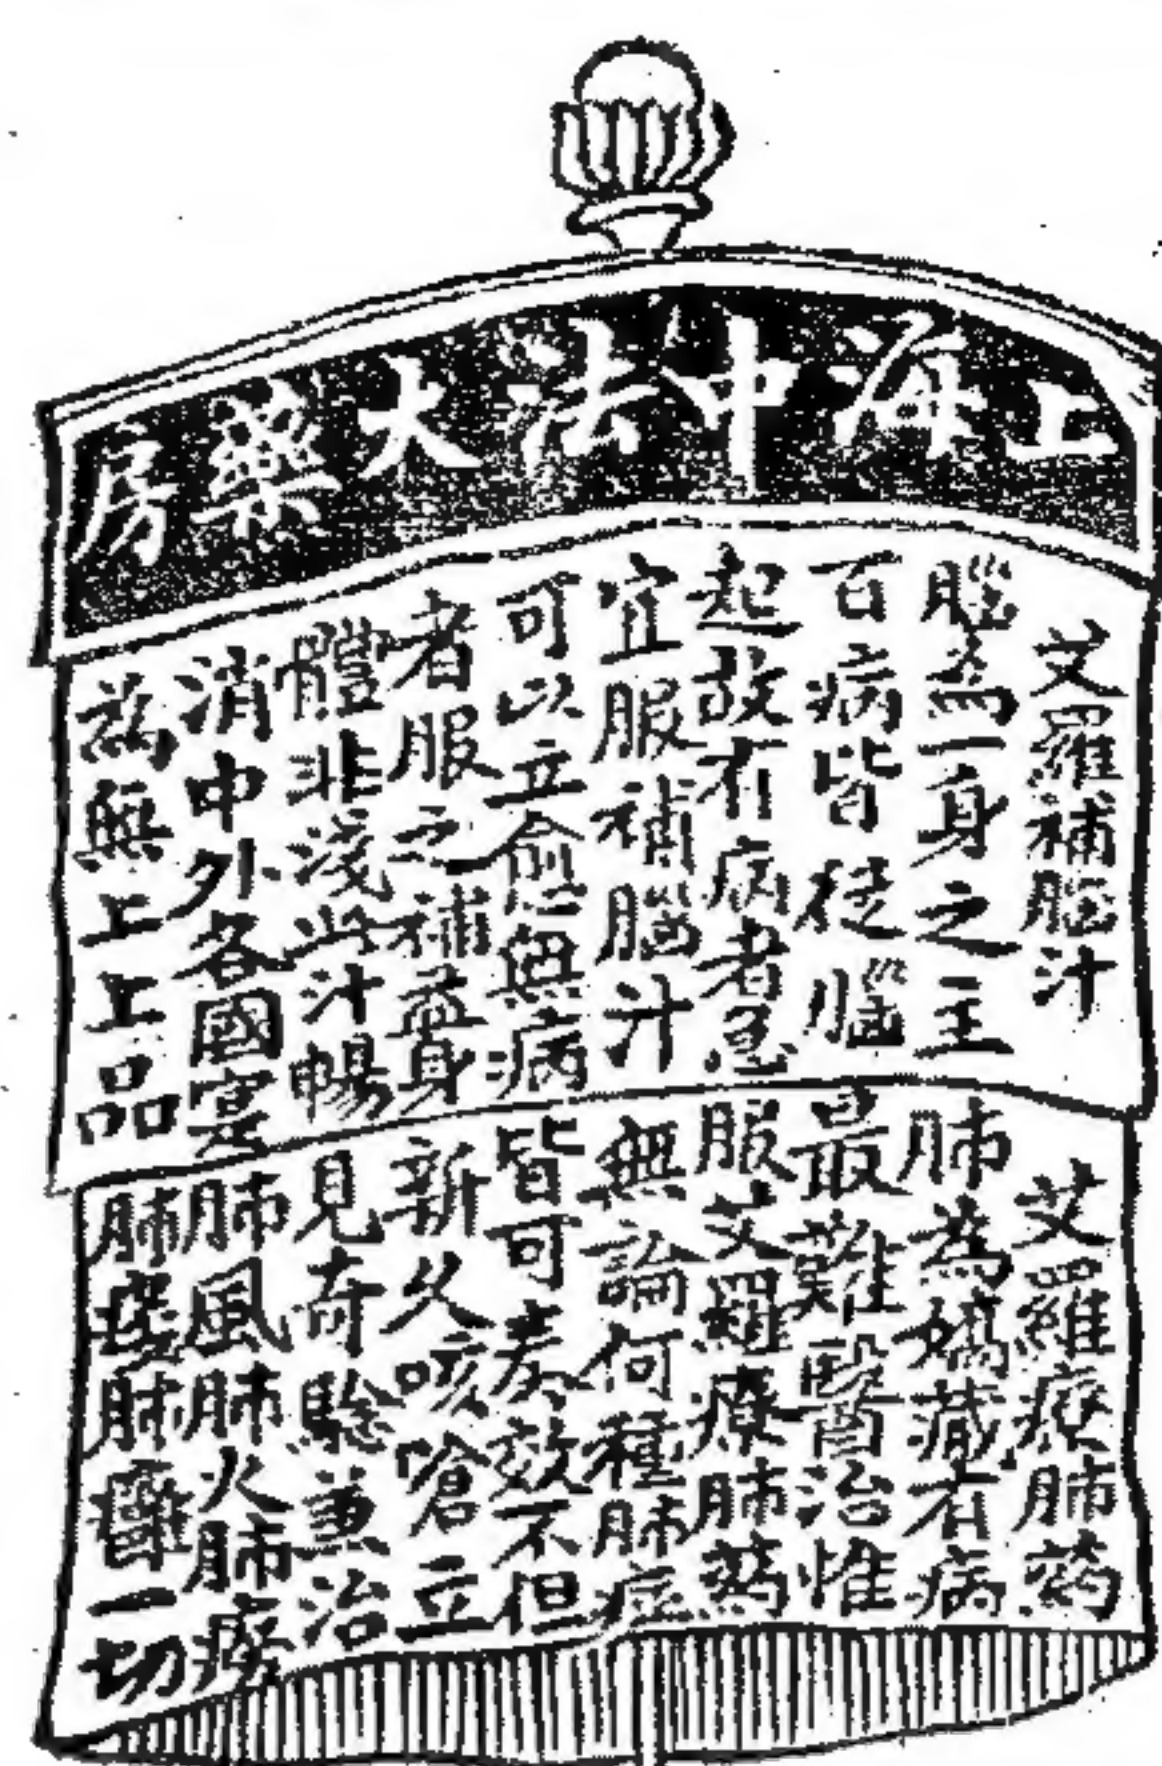 上海中法大藥房
艾羅補腦汁
腦為一身之主
百病皆從腦
起故有病者急
宜服補腦汁
可以立愈無病
者服之補益身
體非淺此汁暢
消中外各國寔
為無上上品
艾羅療肺药
肺為嬌藏有病
最難醫治惟
服艾羅療肺药
無論何種肺症
皆可奏效不但
新久咳嗆立
見奇騐兼治
肺風肺火肺痨
肺痿肺癰一切